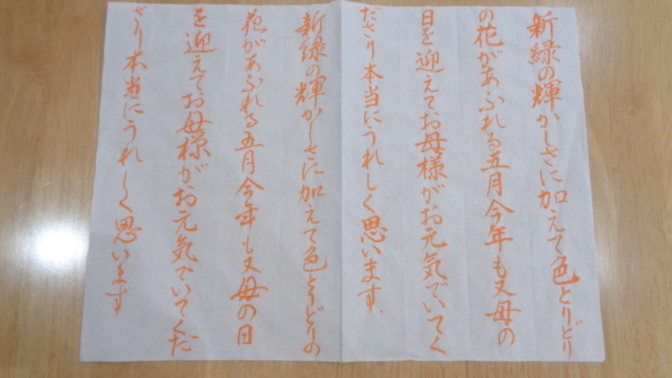 新緑の輝かしさに加えて色とりどり
の花があふれる五月今年も又母の
日を迎えてお母様がお元気でいてく
ださり本当にうれしく思います。
新緑の輝かしさに加えて色とりどりの
花があふれる五月今年も又母の日
を迎えてお母様がお元気でいてくだ
さり本当にうれしく思います